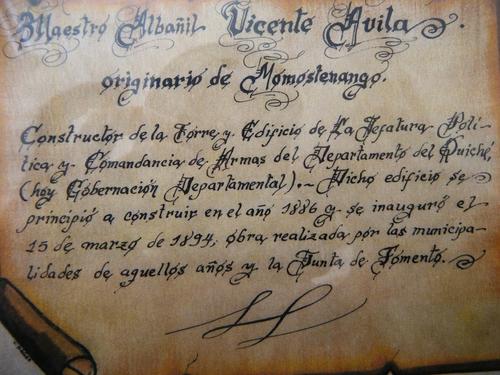 Maestro Albañil Vicente Avila.
originario de Momostenango.
Constructor de la Torre y Edificio de La Jefatura Polí-
tica y Comandancia de Armas del Departamento del Quiché,
(hoy Gobernación Departamental).- Dicho edificio se
principió a construir en el año 1886 y se inauguró el
15 de marzo de 1894, obra realizada por las municipa-
lidades de aquellos años y la Junta de Fomento.